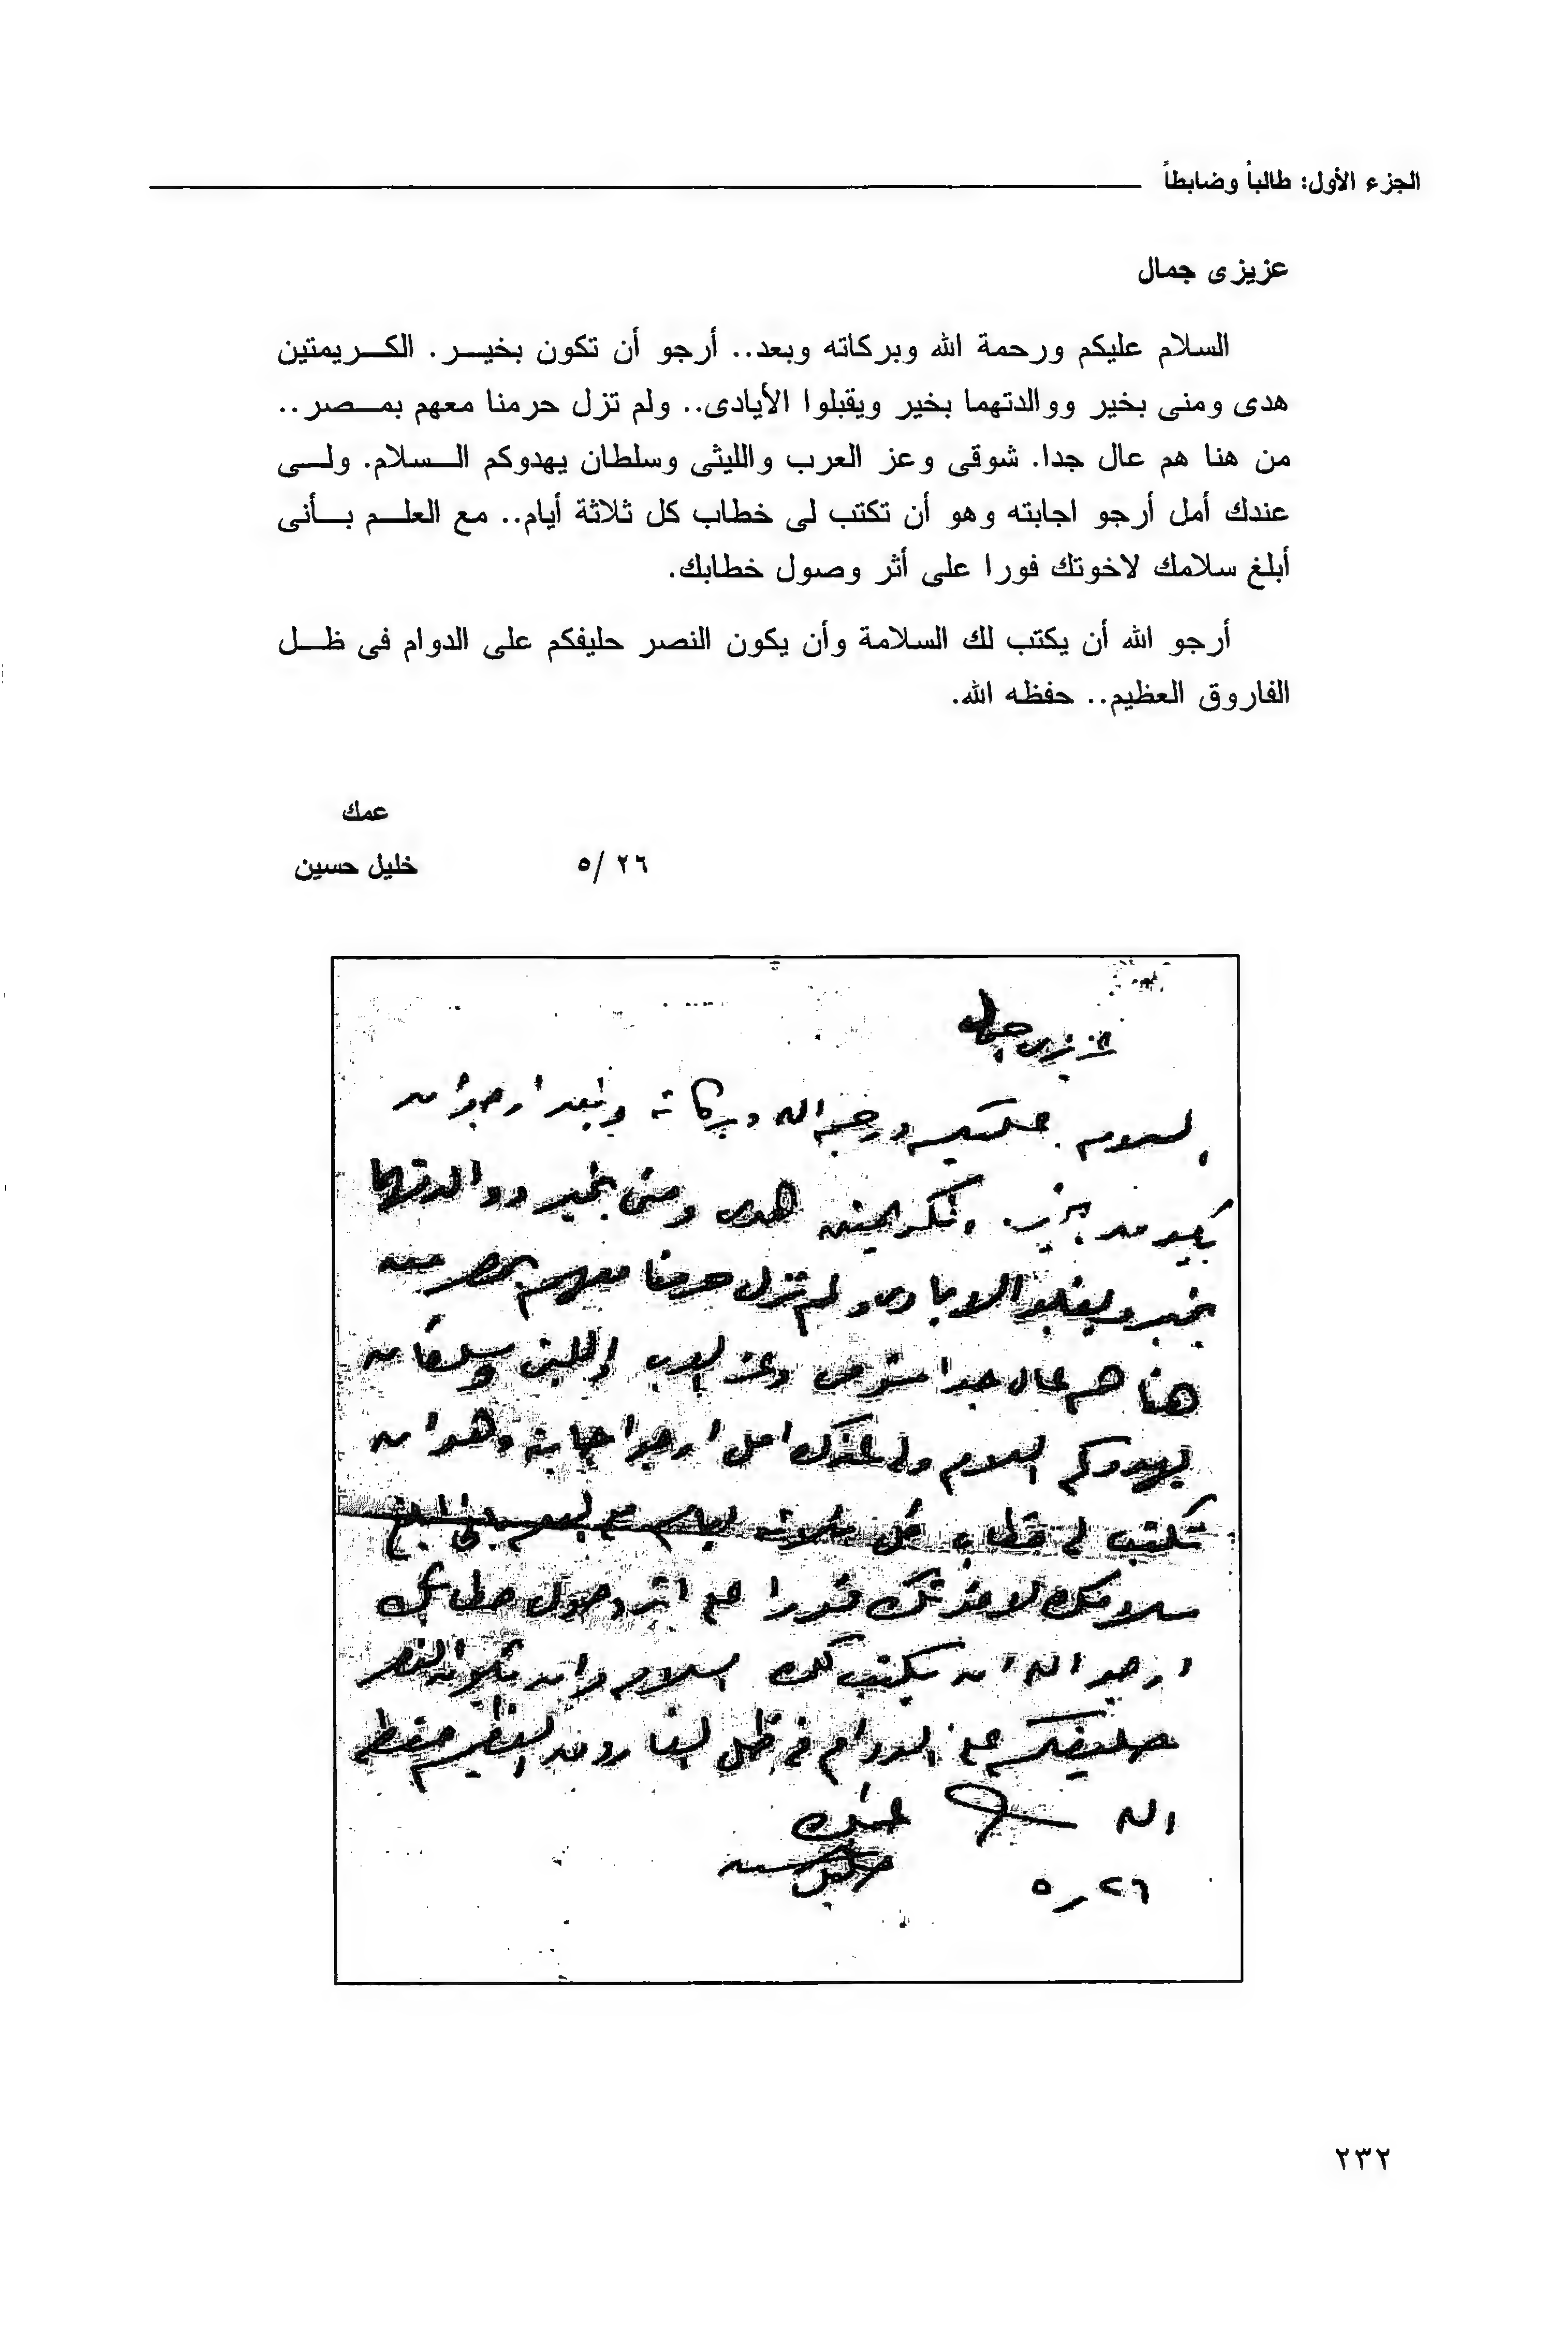 الجزء الأول: طالباً وضابطاً
عزيزى جمال
السلام عليكم ورحمة الله وبركاته وبعد.. أرجو أن تكون بخيـــر. الكـــريمتين
هدى ومنى بخير ووالدتهما بخير ويقبلوا الأيادى.. ولم تزل حرمنا معهم بمـــصر..
من هنا هم عال جدا. شوقى وعز العرب والليثى وسلطان يهدوكم الـــسلام. ولـــى
عندك أمل أرجو اجابته وهو أن تكتب لى خطاب كل ثلاثة أيام.. مع العلـــم بـــأنى
أبلغ سلامك لاخوتك فورا على أثر وصول خطابك.
أرجو الله أن يكتب لك السلامة وأن يكون النصر حليفكم على الدوام فى ظـــل
الفاروق العظيم.. حفظه الله.
عمك
٢٦ /٥ خليل حسين
عزيزى جمال
السلام عليكم ورحمة الله وبركاته وبعد أرجو أن
تكون بخير. والكريمتين هدى ومنى بخير ووالدتهما
بخير ويقبلوا الايادى ولم تزل حرمنا معهم بمصر من
هنا هم عال جدا شوقى وعز العرب والليثى وسلطان
يهدوكم السلام ولى عندك امل ارجو اجابته وهو ان
تكتب لى خطاب كل ثلاثة ايام مع العلم بانى ابلغ
سلامك لاخوتك فورا على اثر وصول خطابك
ارجو الله ان يكتب لك السلامه وان يكون النصر
حليفكم على الدوام فى ظل الفاروق العظيم حفظه
الله عمك
٢٦ر٥ خليل حسين
٢٣٢